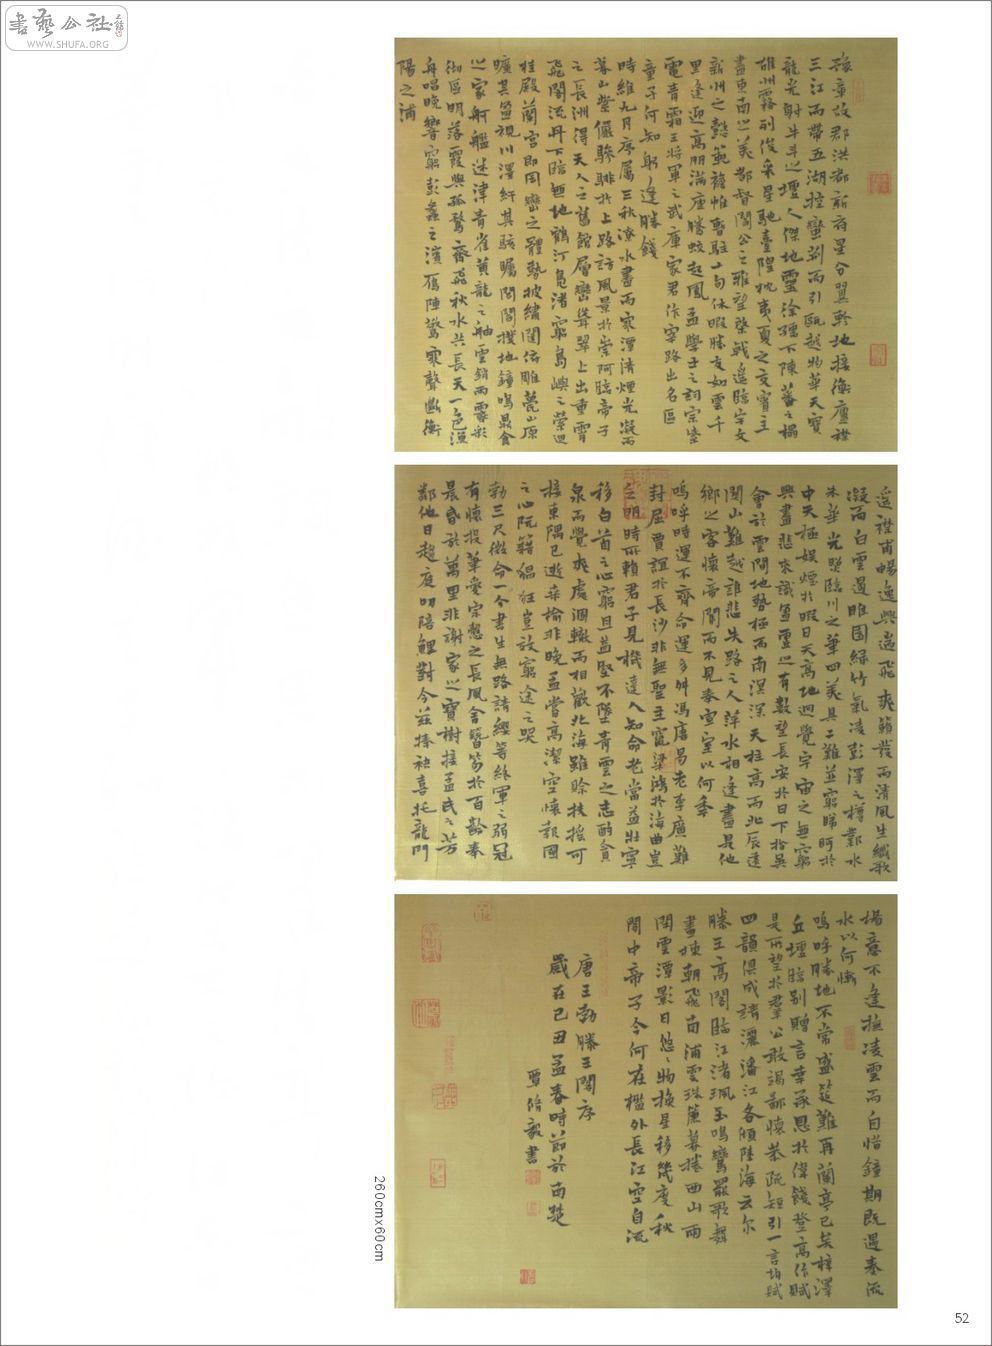 書藝公社
WWW.SHUFA.ORG
豫章故郡洪都新府星分翼軫地接衡廬襟
三江而帶五湖控蠻荊而引甌越物華天寶
龍光射牛斗之墟人傑地靈徐孺下陳蕃之榻
雄州霧列俊采星馳臺隍枕夷夏之交賓主
盡東南之美都督閻公之雅望棨戟遙臨宇文
新州之懿範襜帷暫駐十旬休暇勝友如雲千
里逢迎高朋滿座騰蛟起鳳孟學士之詞宗紫
電青霜王將軍之武庫家君作宰路出名區
童子何知躬逢勝餞
時維九月序屬三秋潦水盡而寒潭清煙光凝而
暮山紫儼驂騑於上路訪風景於崇阿臨帝子
之長洲得天人之舊館層巒聳翠上出重霄
飛閣流丹下臨無地鶴汀鳧渚窮島嶼之縈迴
桂殿蘭宮即岡巒之體勢披繡闥俯雕甍山原
曠其盈視川澤紆其駭矚閭閻撲地鐘鳴鼎食
之家舸艦迷津青雀黃龍之舳雲銷雨霽彩
徹區明落霞與孤鶩齊飛秋水共長天一色漁
舟唱晚響窮彭蠡之濱雁陣驚寒聲斷衡
陽之浦
遙襟甫暢逸興遄飛爽籟發而清風生纖歌
凝而白雲遏睢園綠竹氣凌彭澤之樽鄴水
朱華光照臨川之筆四美具二難並窮睇眄於
中天極娛遊於暇日天高地迥覺宇宙之無窮
興盡悲來識盈虛之有數望長安於日下指吳
會於雲間地勢極而南溟深天柱高而北辰遠
關山難越誰悲失路之人萍水相逢盡是他
鄉之客懷帝閽而不見奉宣室以何年
嗚呼時運不齊命運多舛馮唐易老李廣難
封屈賈誼於長沙非無聖主竄梁鴻於海曲豈
乏明時所賴君子見機達人知命老當益壯寧
移白首之心窮且益堅不墜青雲之志酌貪
泉而覺爽處涸轍而相歡北海雖賒扶搖可
接東隅已逝桑榆非晚孟嘗高潔空懷報國
之心阮籍猖狂豈效窮途之哭
勃三尺微命一介書生無路請纓等終軍之弱冠
有懷投筆愛宗愨之長風舍簪笏於百齡奉
晨昏於萬里非謝家之寶樹接孟氏之芳
鄰他日趨庭叨陪鯉對今茲捧袂喜托龍門
楊意不逢撫凌雲而自惜鐘期既遇奏流
水以何慚
嗚呼勝地不常盛筵難再蘭亭已矣梓澤
丘墟臨別贈言幸承恩於偉餞登高作賦
是所望於羣公敢竭鄙懷恭疏短引一言均賦
四韻俱成請灑潘江各傾陸海云爾
滕王高閣臨江渚珮玉鳴鸞罷歌舞
畫棟朝飛南浦雲珠簾暮捲西山雨
閒雲潭影日悠悠物換星移幾度秋
閣中帝子今何在檻外長江空自流
唐王勃滕王閣序
歲在己丑孟春時節於南楚
覃脩毅書
260cmx60cm
52